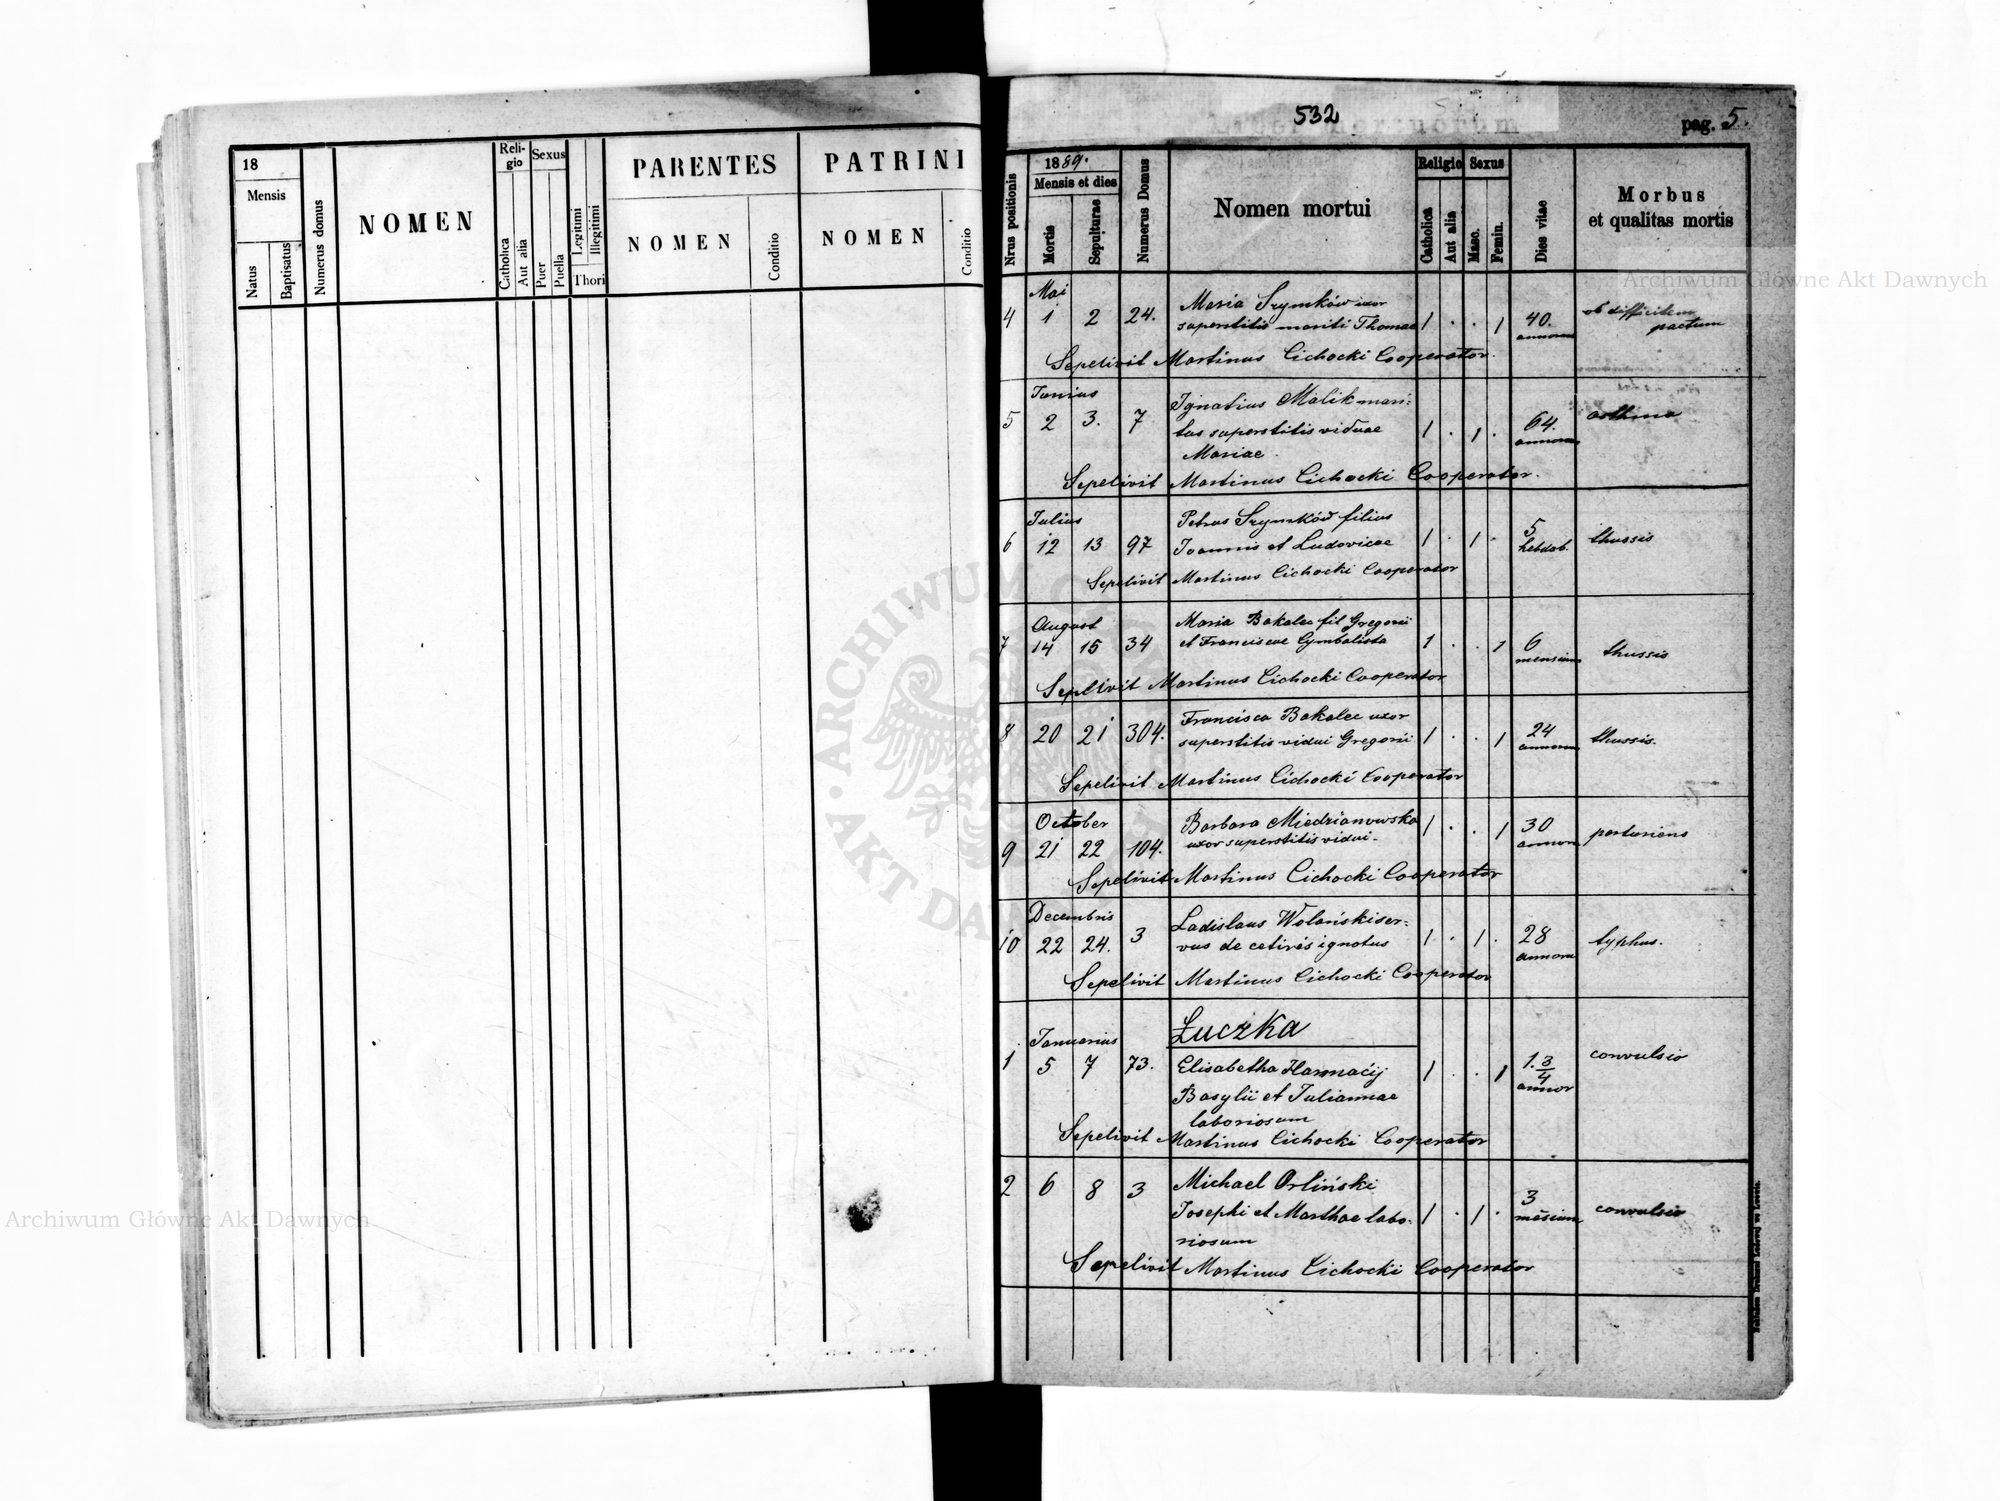 532
pag. 5.
18
Mensis
Natus
Baptisatus
Numerus domus
NOMEN
Reli-
gio
Catholica
Aut alia
Sexus
Puer
Puella
Legitimi
Illegitimi
Thori
PARENTES
NOMEN
Conditio
PATRINI
NOMEN
Conditio
Nrus positionis
1889.
Mensis et dies
Mortis
Sepulturae
Numerus Domus
Nomen mortui
Religio
Catholica
Aut alia
Sexus
Masc.
Femin.
Dies vitae
Morbus
et qualitas mortis
Mai
4 1 2 24. Maria Szymków uxor
superstitis mariti Thomae 1 . . 1 40. annorum ob difficilem
partum
Sepelivit Martinus Cichocki Cooperator.
Junius
5 2 3. 7 Ignatius Malik mari-
tus superstitis viduae
Mariae. 1 . 1 . 64. annorum asthma
Sepelivit Martinus Cichocki Cooperator.
Julius
6 12 13 97 Petrus Szymków filius
Joannis et Ludovicae 1 . 1 . 5 hebdob. thussis
Sepelivit Martinus Cichocki Cooperator
August
7 14 15 34 Maria Bakalec fil Gregorii
et Franciscae Cymbalista 1 . . 1 6 mensium thussis
Seplivit Martinus Cichocki Cooperator
8 20 21 304. Francisca Bakalec uxor
superstitis vidui Gregorii 1 . . 1 24 annorum thussis.
Sepelivit Martinus Cichocki Cooperator
October
9 21 22 104. Barbara Miedzianowska
uxor superstitis vidui. 1 . . 1 30 annorum parturiens
Sepelivit Martinus Cichocki Cooperator
Decembris
10 22 24. 3 Ladislaus Wolański ser-
vus de cetiris ignotus 1 . 1 . 28 annorum typhus.
Sepelivit Martinus Cichocki Cooperator
Łuczka
Januarius
1 5 7 73. Elisabetha Harmacij
Basylii et Juliannae
laboriosum 1 . . 1 1.3/4 annor convulsio
Sepelivit Martinus Cichocki Cooperator
2 6 8 3 Michael Orliński
Josephi et Marthae labo-
riosum 1 . 1 . 3 mesium convulsio
Sepelivit Martinus Cichocki Cooperator
Archiwum Główne Akt Dawnych
Archiwum Główne Akt Dawnych